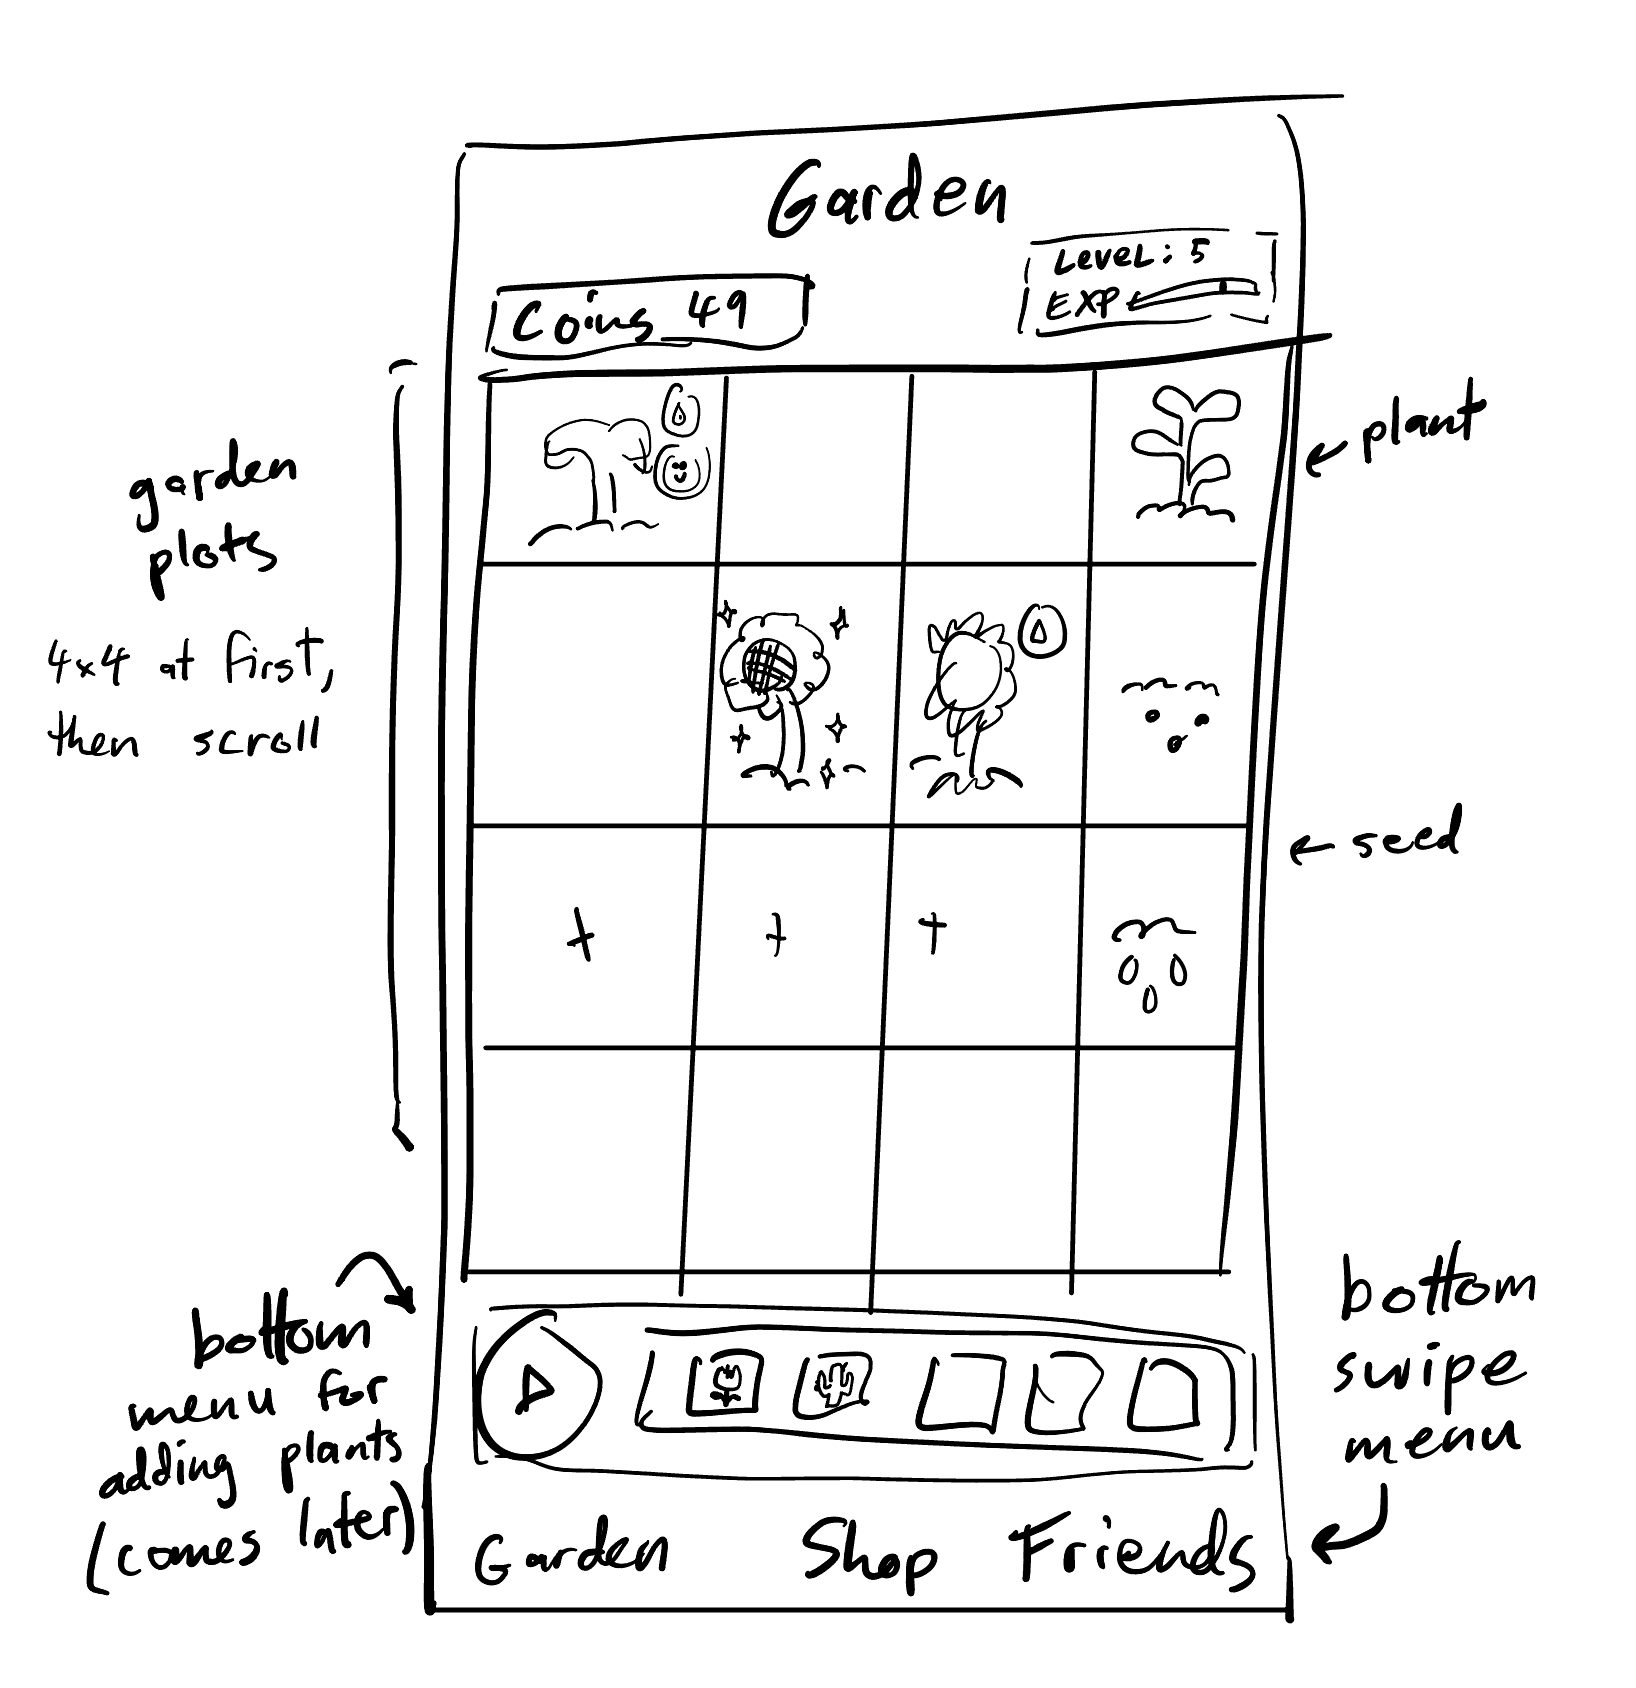 Garden
Level: 5
EXP
Coins 49
plant
garden
plots
4x4 at first,
then scroll
seed
+ + +
bottom
menu for
adding plants
(comes later)
bottom
swipe
menu
Garden Shop Friends